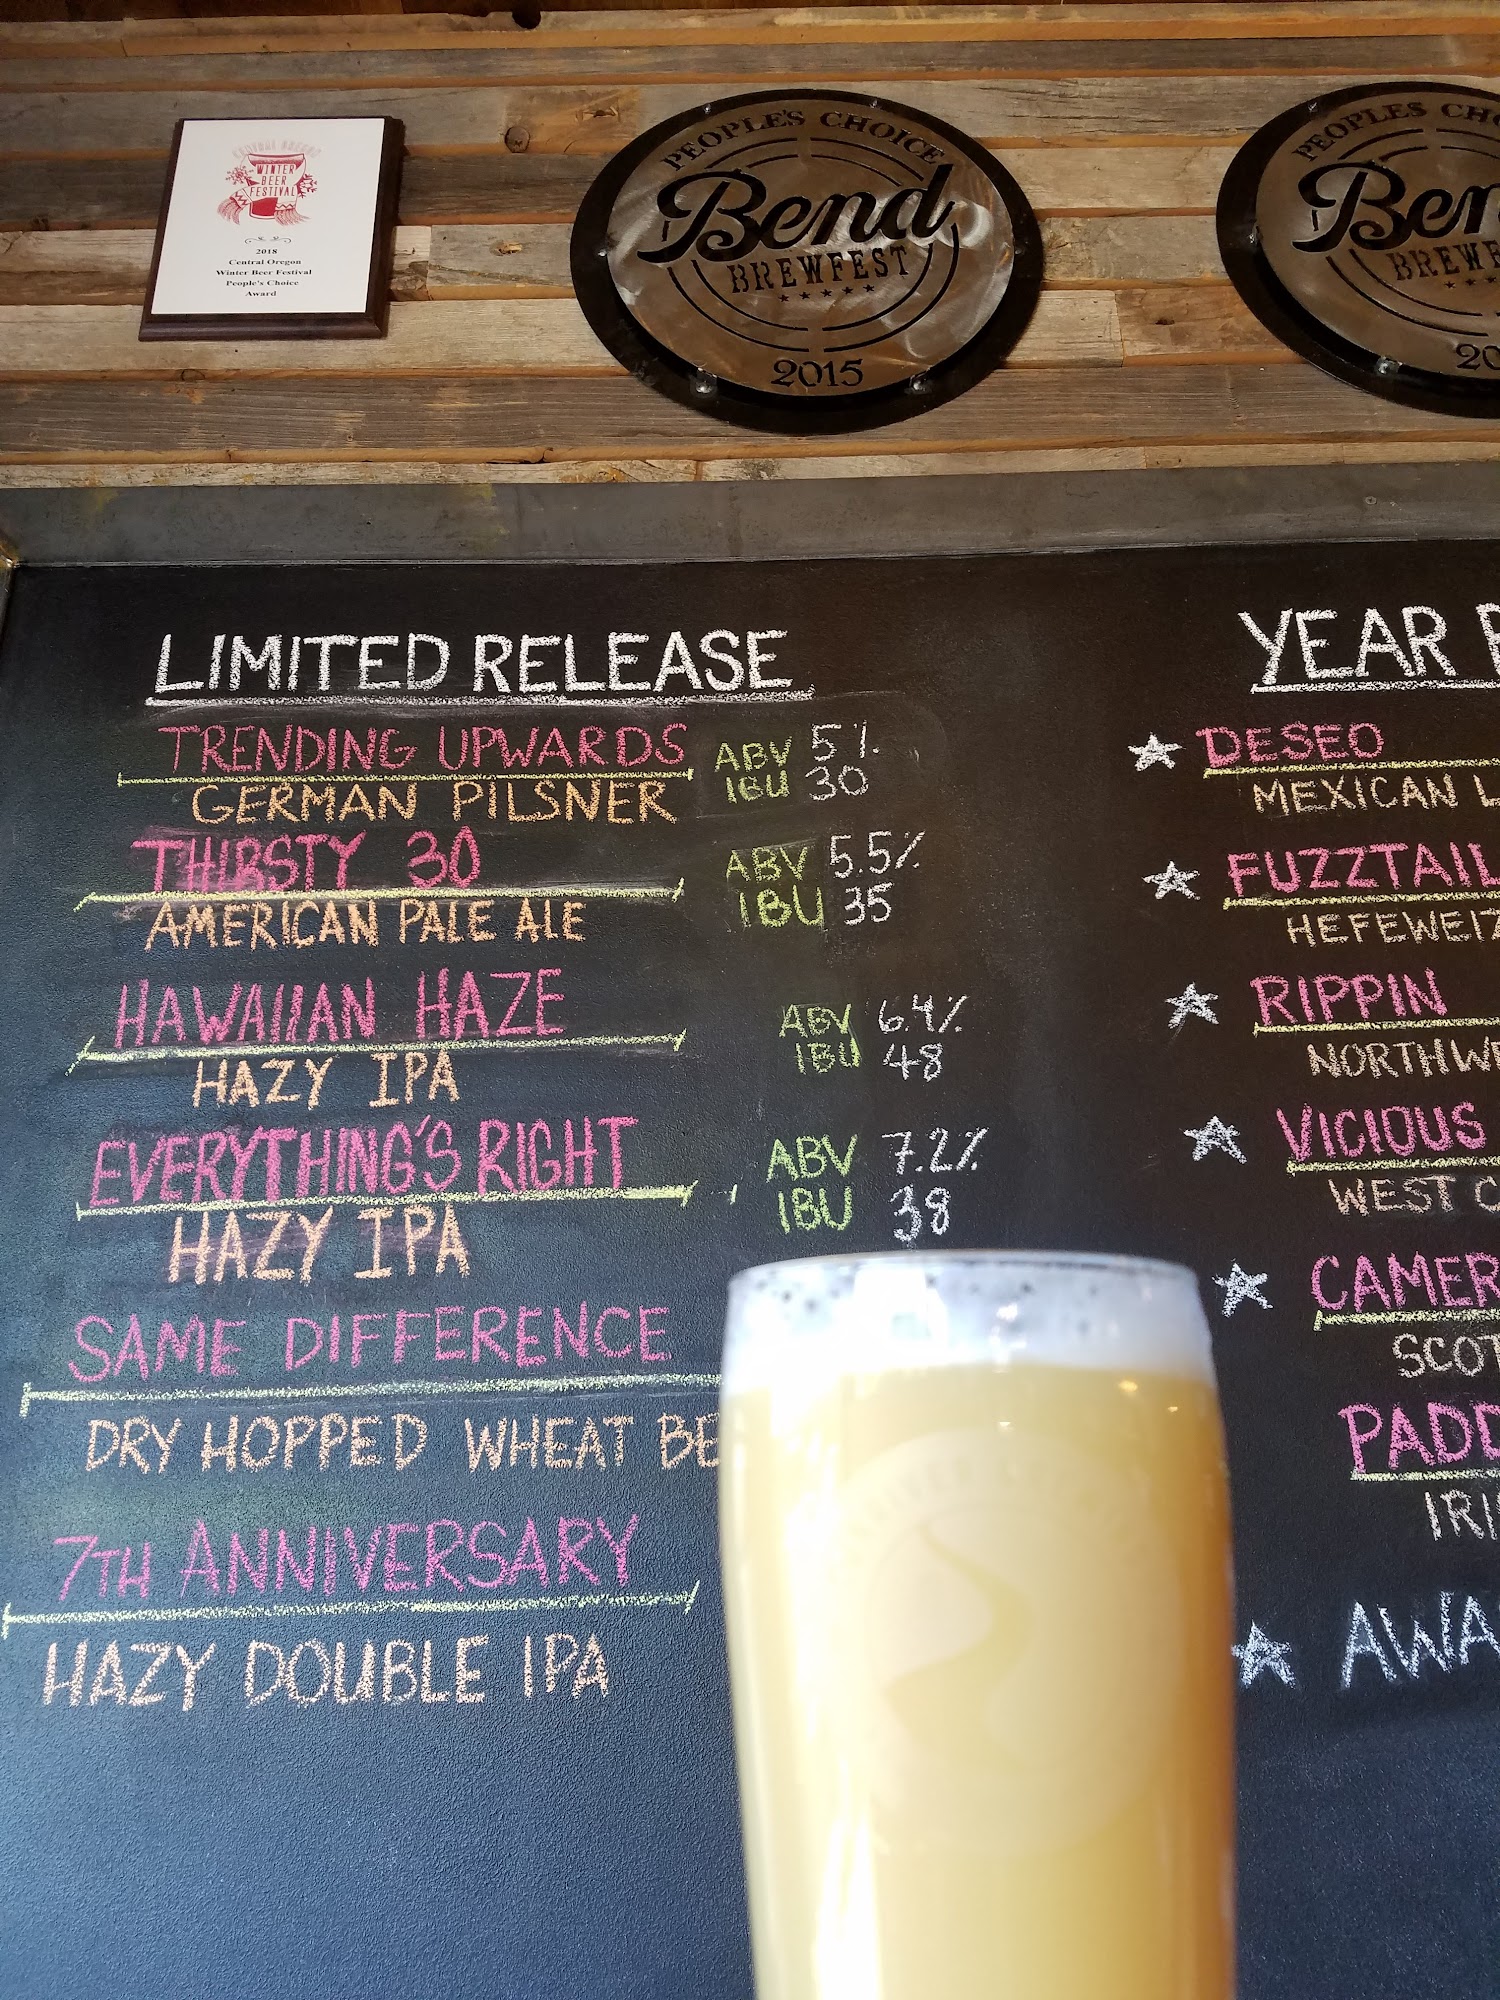 WINTER
BEER
FESTIVAL
2018
Central Oregon
Winter Beer Festival
People's Choice
Award
PEOPLE'S CHOICE
Bend
BREWFEST
2015
PEOPLE'S
LIMITED RELEASE
TRENDING UPWARDS ABV 5%
GERMAN PILSNER IBU 30
THIRSTY 30 ABV 5.5%
AMERICAN PALE ALE IBU 35
HAWAIIAN HAZE ABV 6.4%
HAZY IPA IBU 48
EVERYTHING'S RIGHT ABV 7.2%
HAZY IPA IBU 38
SAME DIFFERENCE
DRY HOPPED WHEAT BE
7TH ANNIVERSARY
HAZY DOUBLE IPA
YEAR
DESEO
MEXICAN L
FUZZTAIL
HEFEWEIZ
RIPPIN
NORTHWE
VICIOUS
WEST C
CAMER
SCOT
PADD
IRI
AWA